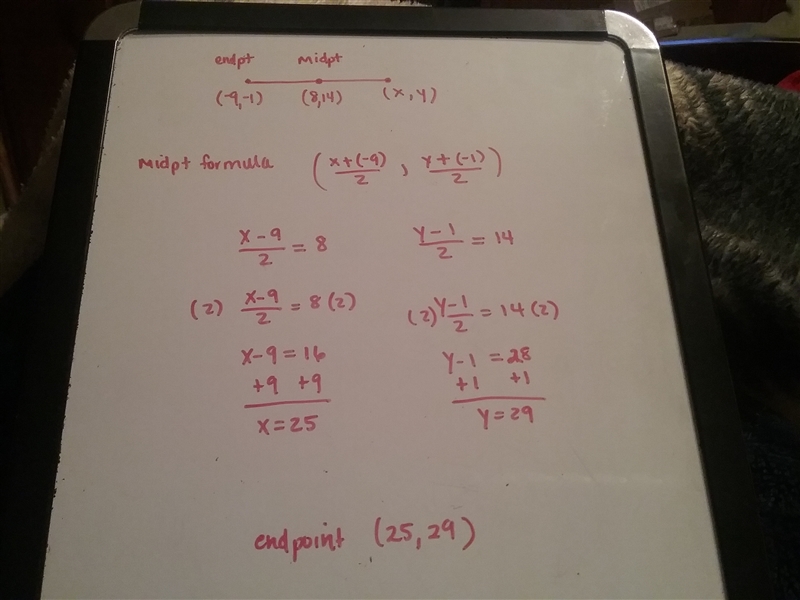 endpt midpt
(-9,-1) (8,14) (x,y)
Midpt formula (x+(-9)/2 , y+(-1)/2)
x-9/2 = 8 y-1/2 = 14
(2) x-9/2 = 8(2) (2) y-1/2 = 14(2)
x-9 = 16 y-1 = 28
+9 +9 +1 +1
x = 25 y = 29
endpoint (25,29)